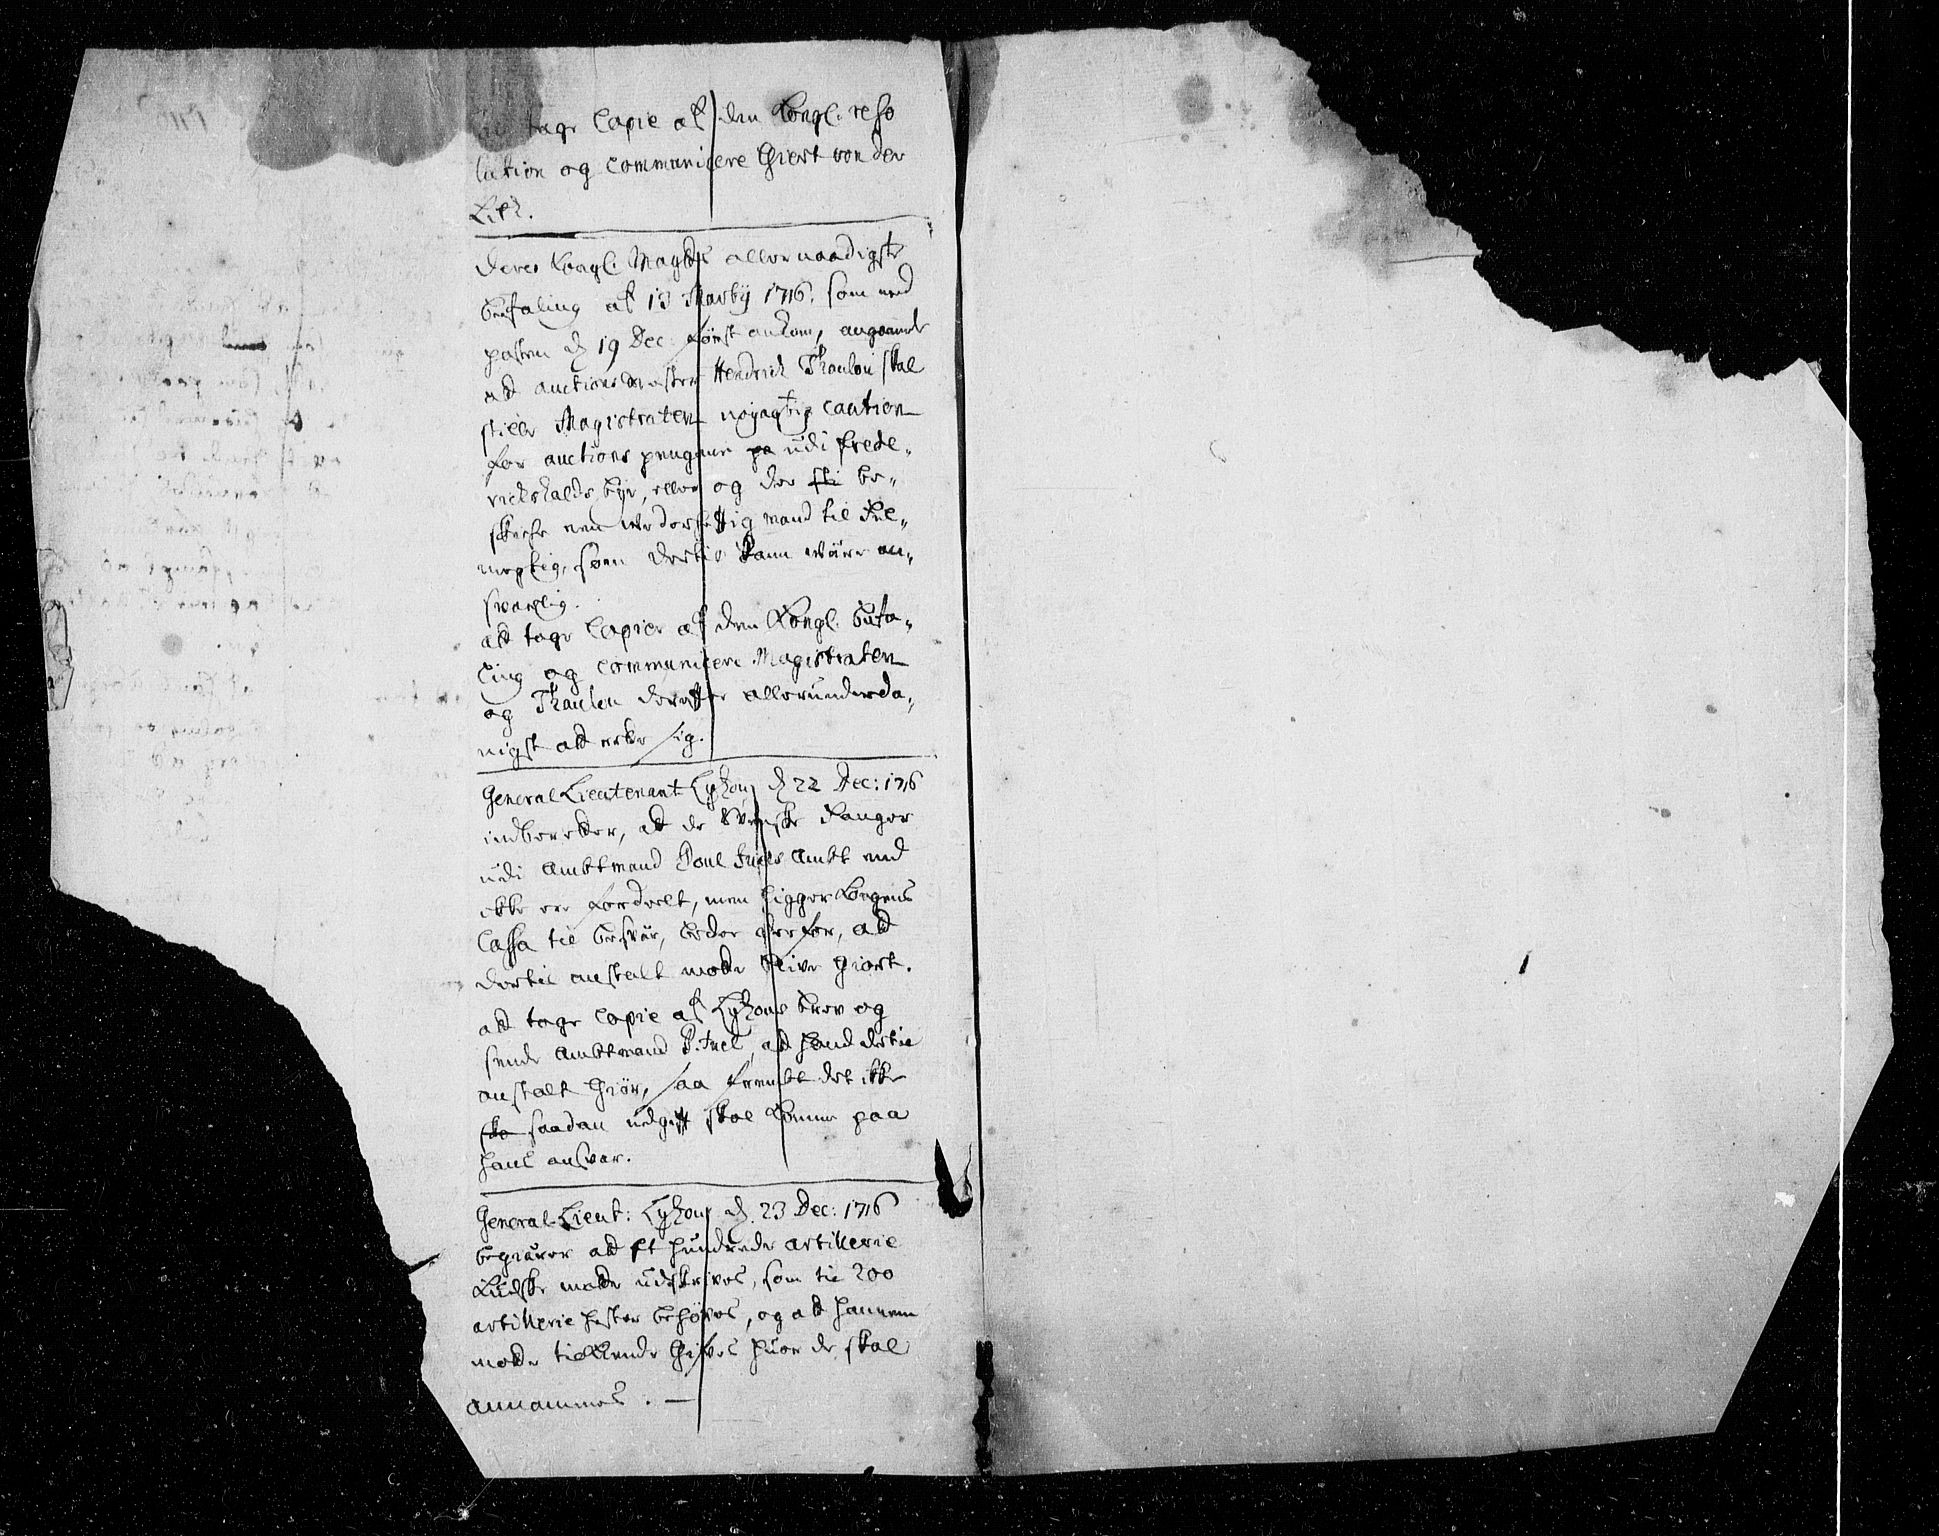 tage Copie af den Kongl. reso
lution og communicere Giert von der
Lith.
Deres Kongl. Maytts allernaadigste
befaling af 13 Martij 1716. som med
posten d. 19 Dec. først ankom, angaaende
att auctions mester Hendrich Thaulou skal
stille Magistraten nøyagtig caution
for auctions pengene pa udi Frede„
richshalds bye, eller og der sti be„
skiche een wederhefftig mand til ful„
megtig, som dertil kann være an„
svarlig.
att tage Copier af den Kongl. befa„
ling og communicere Magistraten
og Thaulou derefter allerunderda„
nigst att rette sig.
General Lieutenant Lyzou d. 22 Dec: 1716
indberetter, att de Svenske fanger
udi Ambtmand Poul Juels Ambt end
ikke ere fordeelt, men ligger Kongens
Cassa til besvær, beder derfor, att
dertil anstalt motte blive giort.
att tage Copie af Lyzous brev og
sende Ambtmand P. Juel, att hand dertil
anstalt giør, saa fremt det ikke
ska saadan udgift skal komme paa
hans ansvar.
General-Lieut: Lyzou d. 23 Dec: 1716
begiærer att et hundrede artillerie
Kudske motte udskrives, som til 200
artillerie hester behøves, og att hannem
motte tilkiende gifves huor de skal
annammes. —